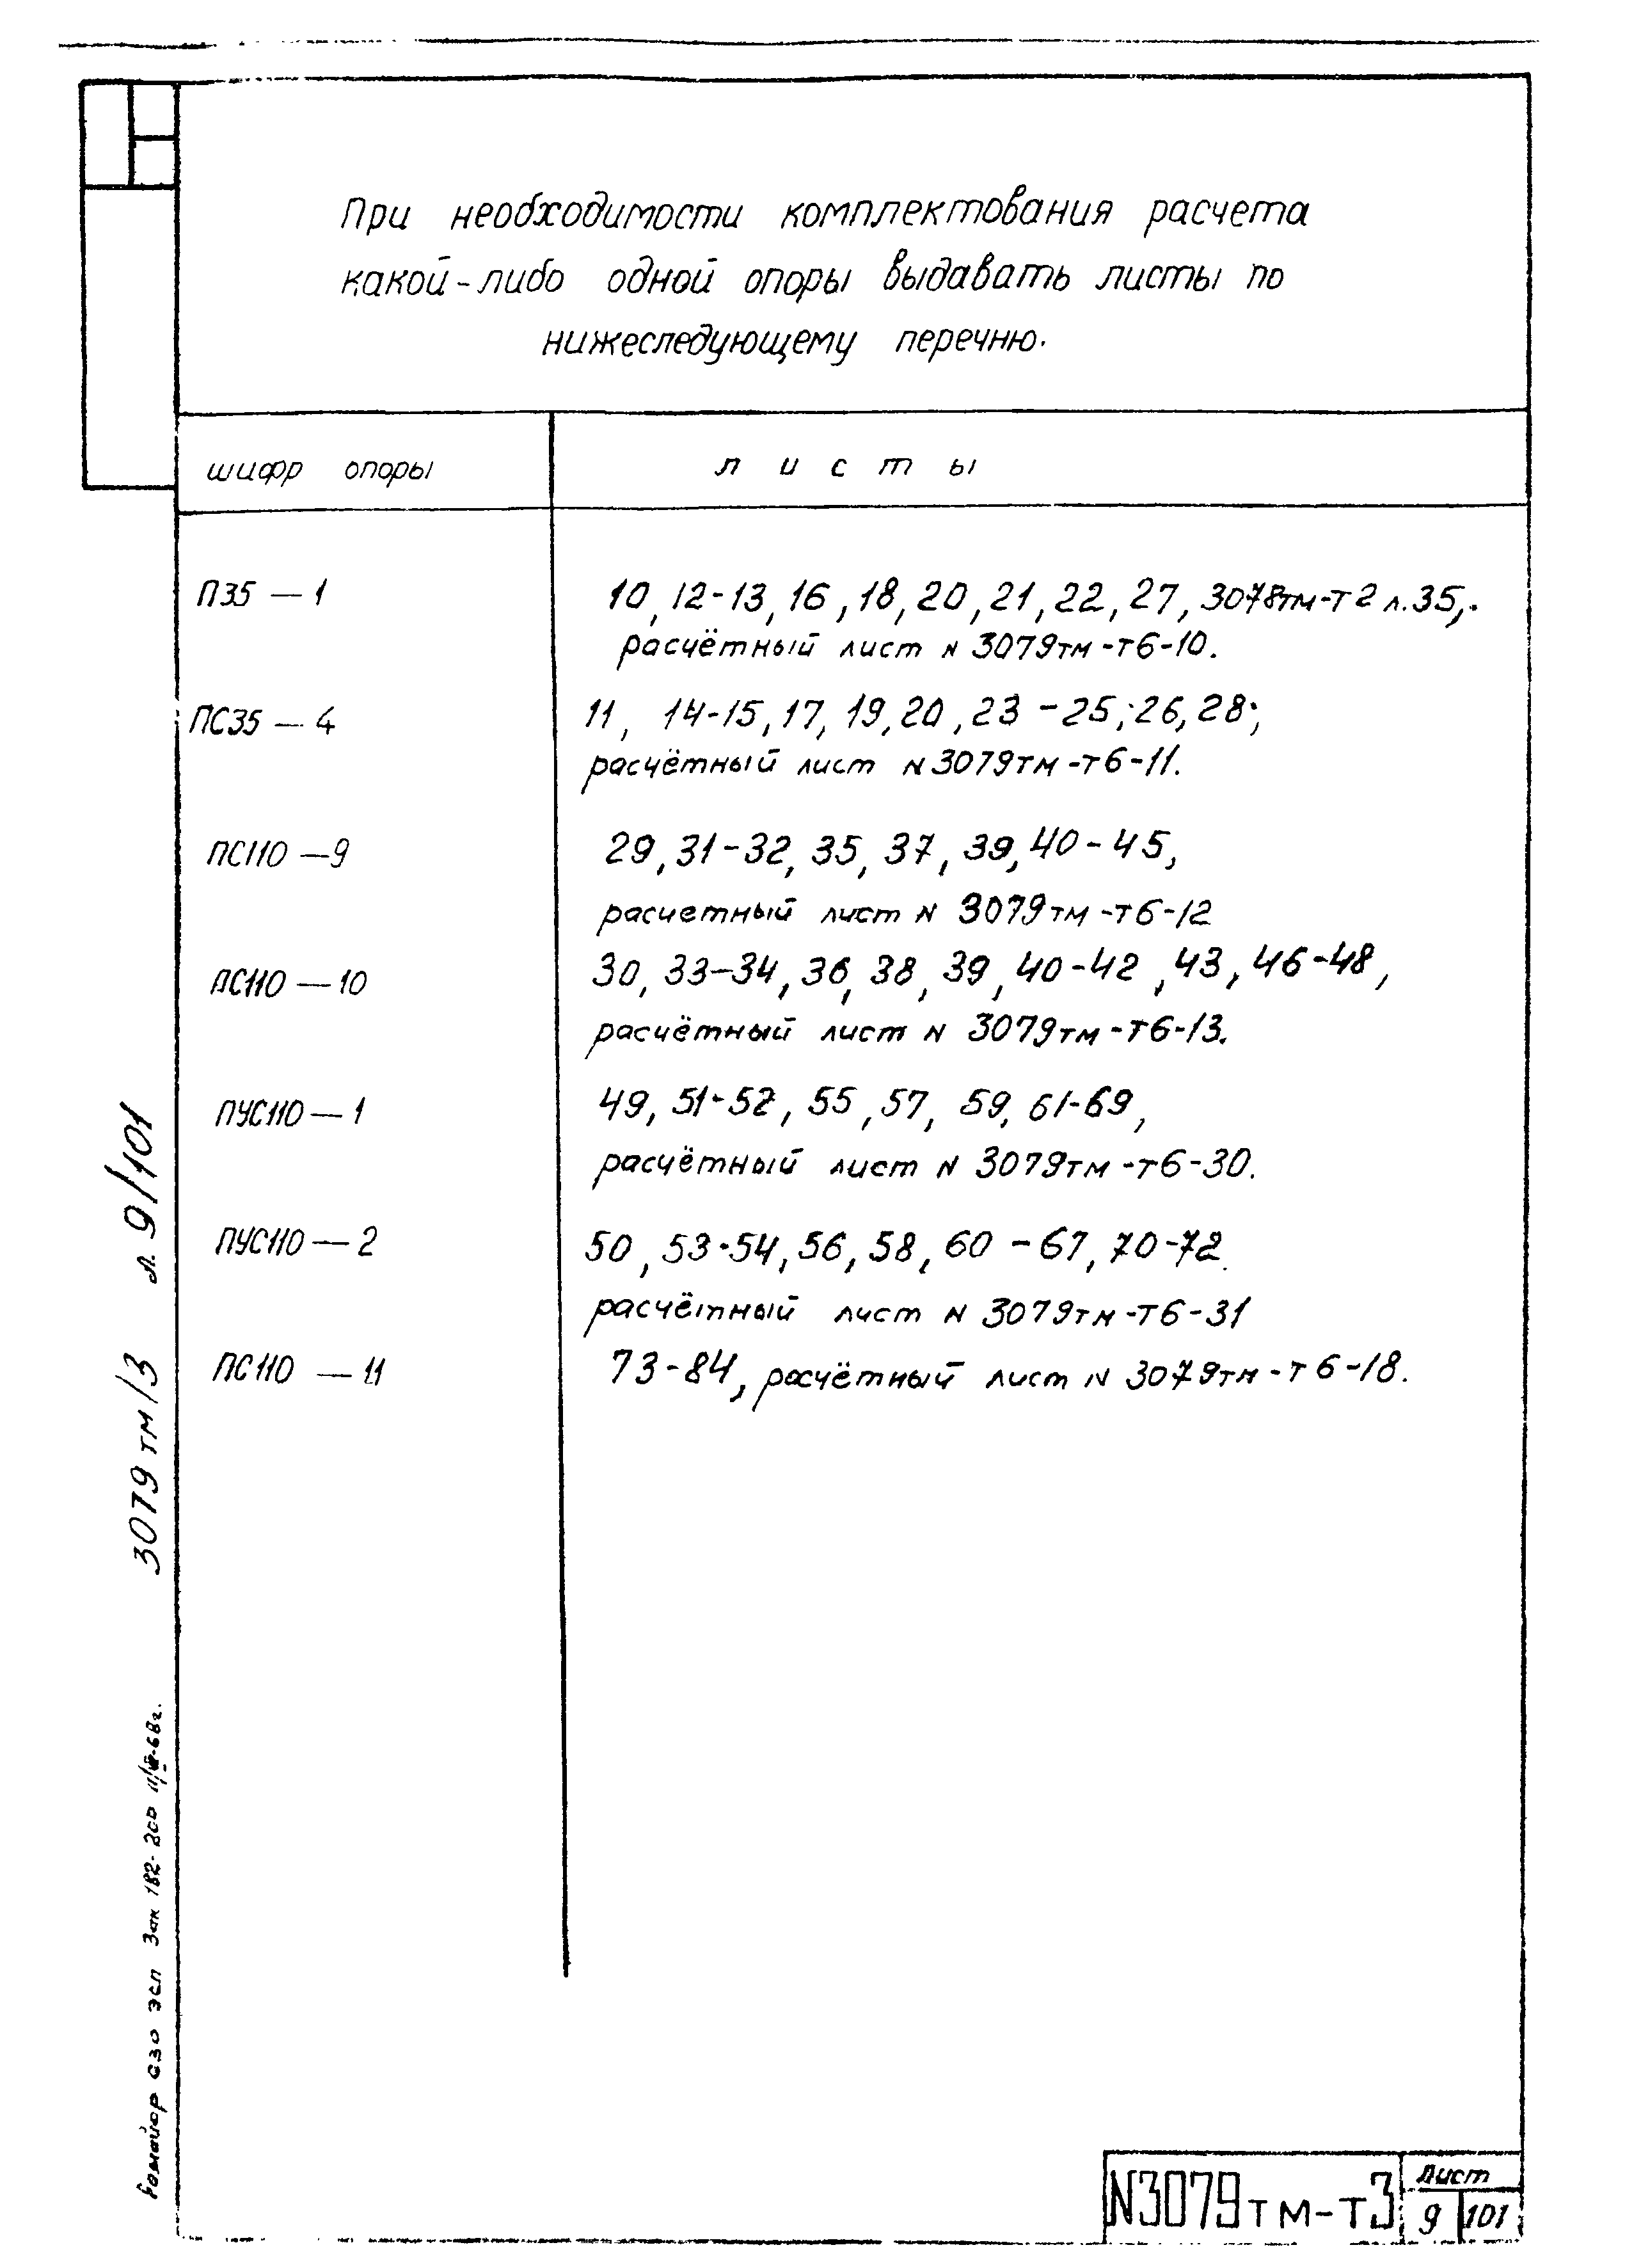 При необходимости комплектования расчета
какой-либо одной опоры выдавать листы по
нижеследующему перечню.
шифр опоры
листы
П35 — 1
10, 12-13, 16, 18, 20, 21, 22, 27, 3078тм-т2 л.35,.
расчётный лист N 3079тм-т6-10.
ПС35 — 4
11, 14-15, 17, 19, 20, 23 - 25; 26, 28;
расчётный лист N 3079тм-т6-11.
ПС110 — 9
29, 31-32, 35, 37, 39, 40-45,
расчетный лист N 3079тм-т6-12
ПС110 — 10
30, 33-34, 36, 38, 39, 40-42, 43, 46-48,
расчётный лист N 3079тм-т6-13.
ПУС110 — 1
49, 51-52, 55, 57, 59, 61-69,
расчётный лист N 3079тм-т6-30.
ПУС110 — 2
50, 53-54, 56, 58, 60 - 67, 70-72
расчётный лист N 3079тм-т6-31
ПС110 — 11
73-84, расчётный лист N 3079тм-т6-18.
3079 тм/3 л. 9/101
СЗО ЭСП Зак 182-200
N3079тм-т3
Лист
9 101